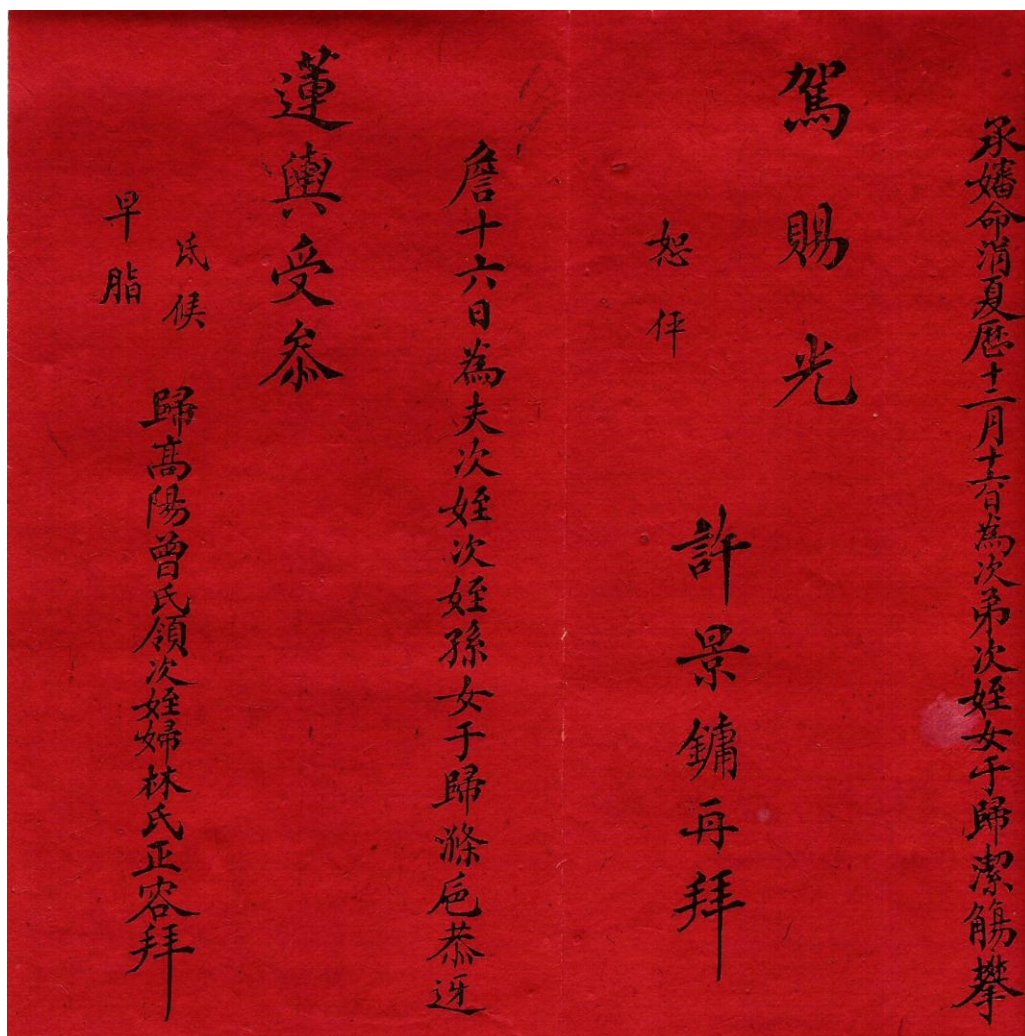 承嬸命涓夏歷十二月十六日為次弟次姪女于歸潔觴攀
駕賜光
恕伻
許景鏞再拜
詹十六日為夫次姪次姪孫女于歸滌巵恭迓
蓮輿受叅
氏候
早脂
歸高陽曾氏領次姪婦林氏正容拜